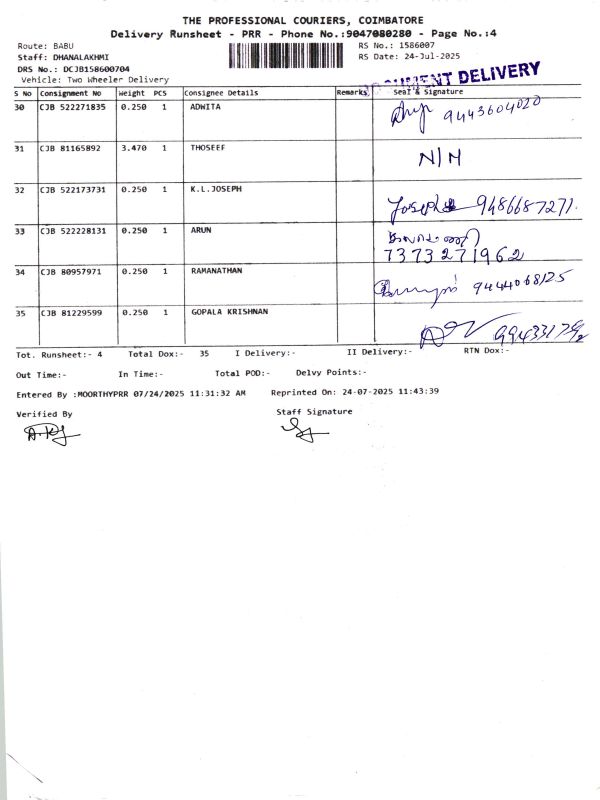 THE PROFESSIONAL COURIERS, COIMBATORE
Delivery Runsheet - PRR - Phone No.:9047080280 - Page No.:4
Route: BABU RS No.: 1586007
Staff: DHANALAKHMI RS Date: 24-Jul-2025
DRS No.: DCJB158600704
Vehicle: Two Wheeler Delivery
DOCUMENT DELIVERY
S No Consignment No Weight PCS Consignee Details Remarks Seal & Signature
30 CJB 522271835 0.250 1 ADWITA 9443604020
31 CJB 81165892 3.470 1 THOSEEF N/H
32 CJB 522173731 0.250 1 K.L.JOSEPH Joseph 9486687271.
33 CJB 522228131 0.250 1 ARUN
7373271962
34 CJB 80957971 0.250 1 RAMANATHAN 9444068125
35 CJB 81229599 0.250 1 GOPALA KRISHNAN
Tot. Runsheet:- 4 Total Dox:- 35 I Delivery:- II Delivery:- RTN Dox:-
Out Time:- In Time:- Total POD:- Delvy Points:-
Entered By :MOORTHYPRR 07/24/2025 11:31:32 AM Reprinted On: 24-07-2025 11:43:39
Verified By Staff Signature